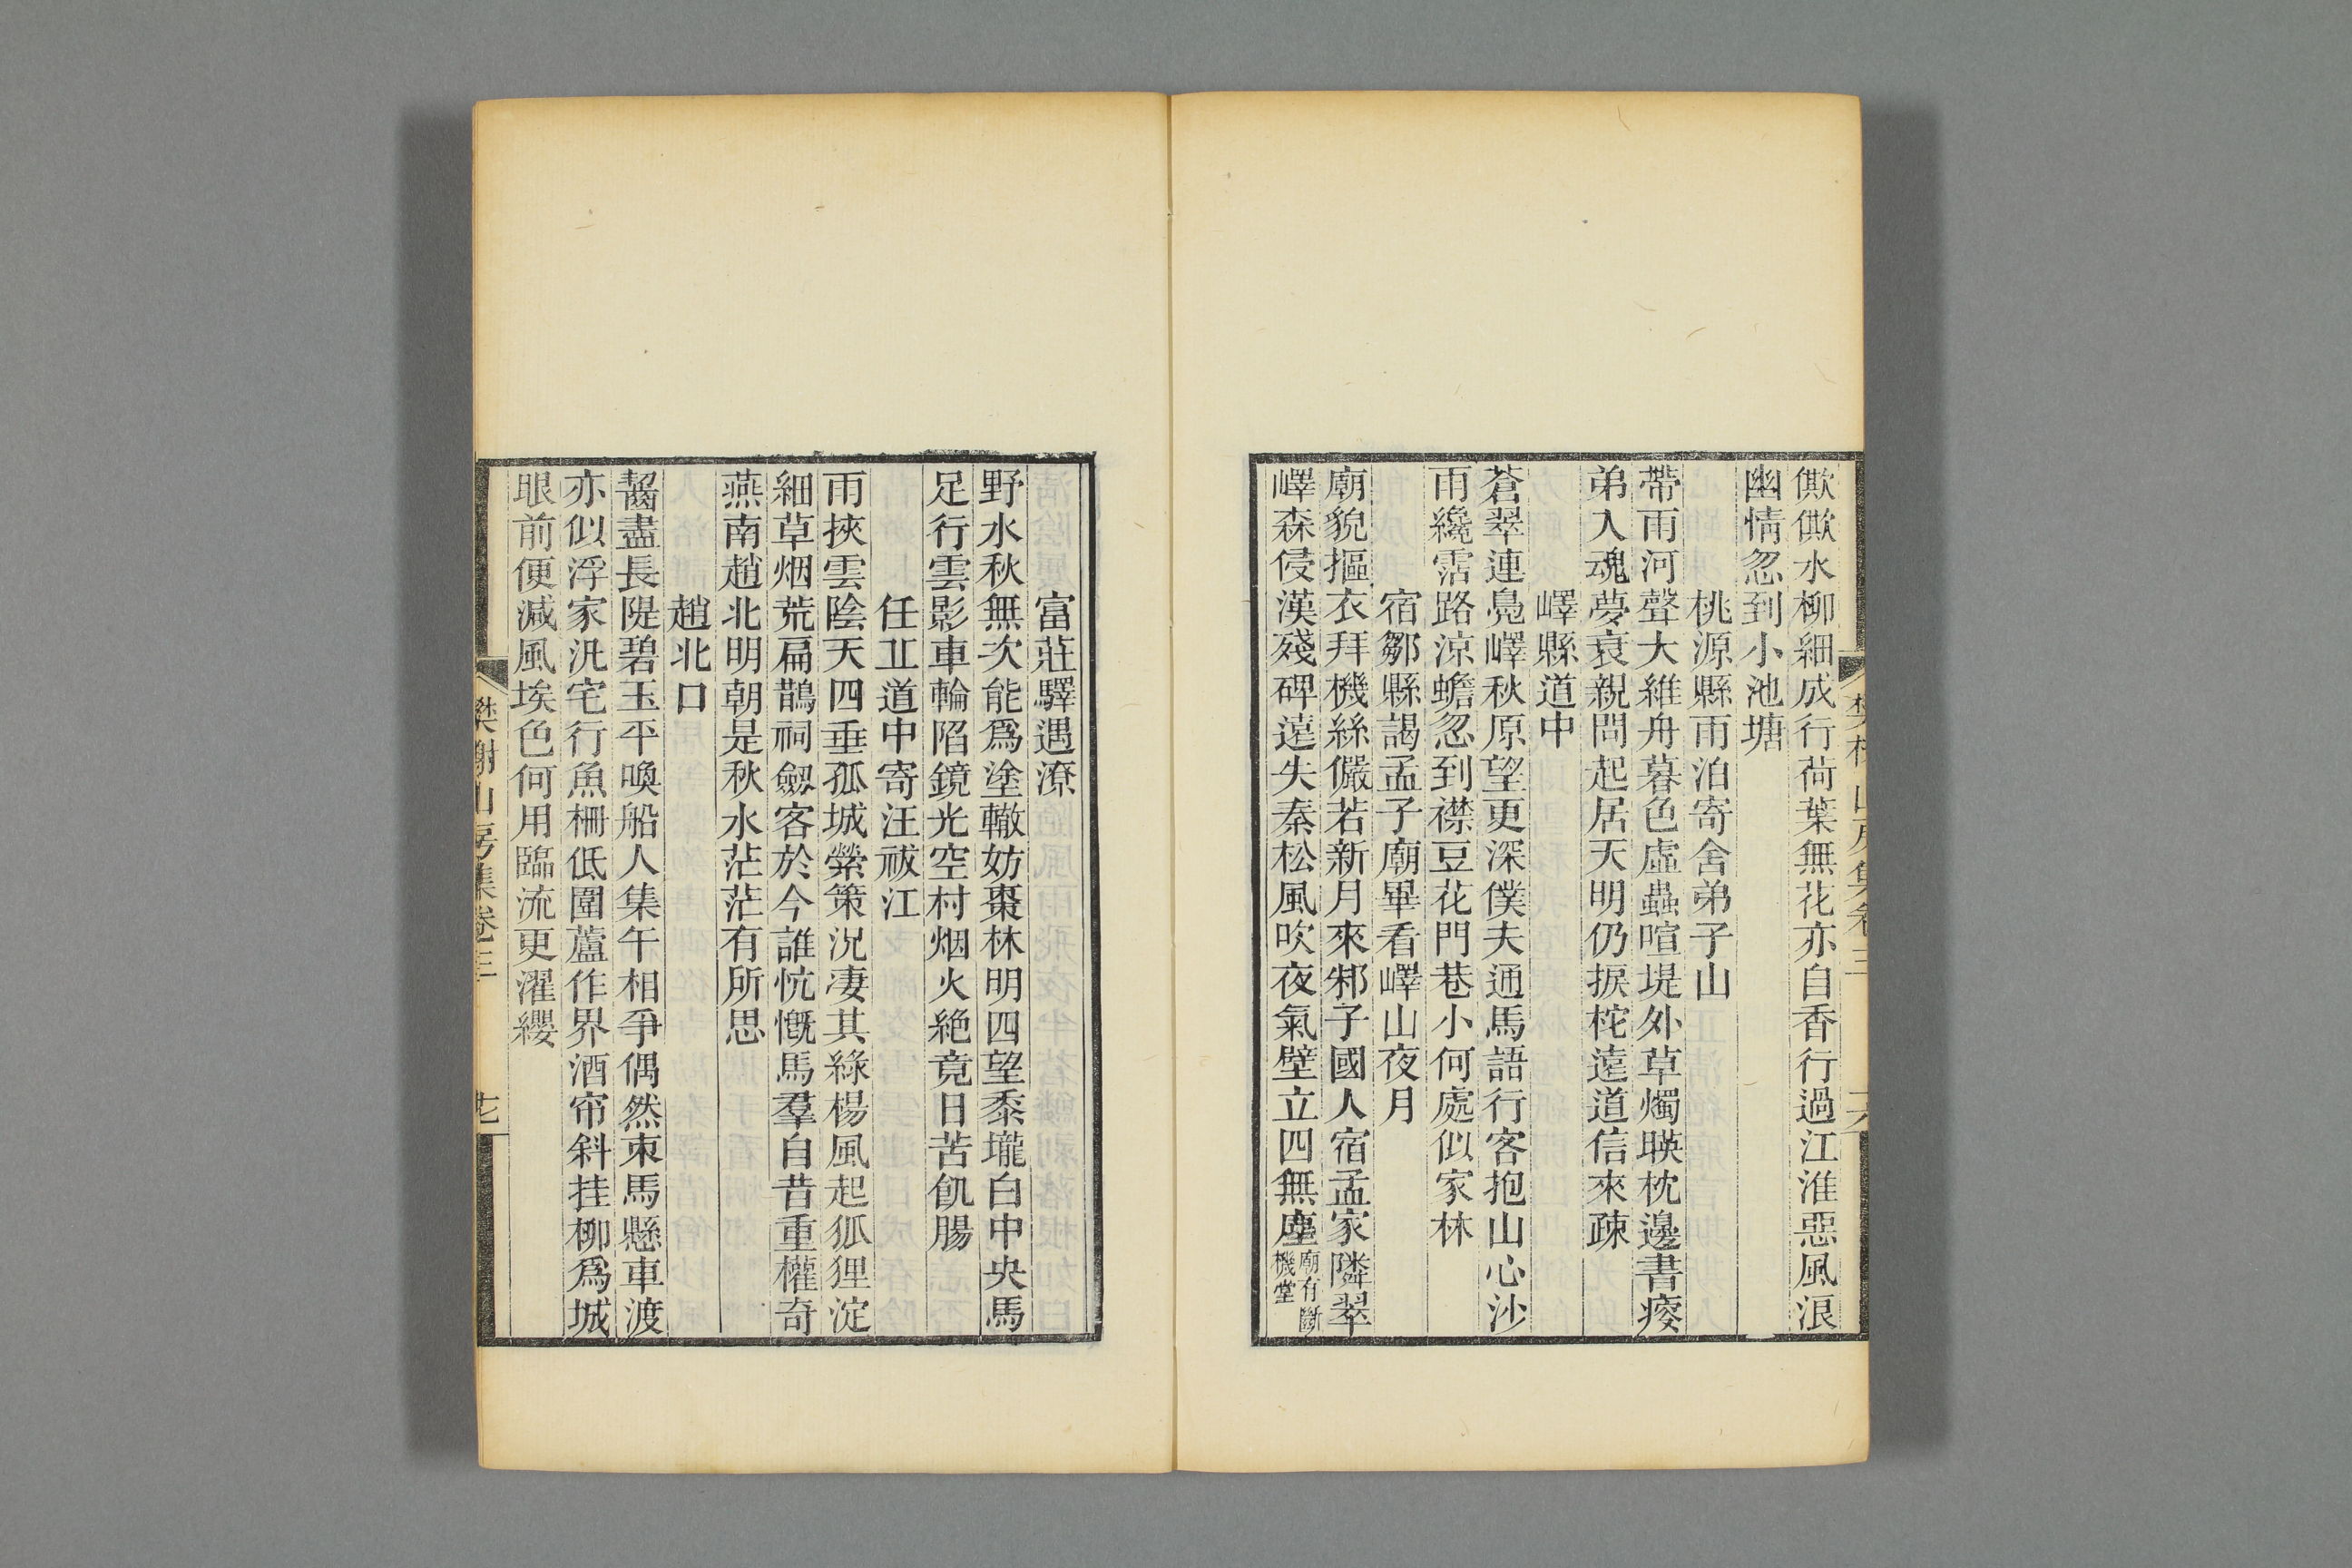 僛僛水柳細成行荷葉無花亦自香行過江淮惡風浪
幽情忽到小池塘
桃源縣雨泊寄舍弟子山
帶雨河聲大維舟暮色虛蟲喧堤外草燭暎枕邊書瘦
弟入魂夢衰親問起居天明仍捩柁遠道信來疎
嶧縣道中
蒼翠連鳧嶧秋原望更深僕夫通馬語行客抱山心沙
雨纔霑路涼蟾忽到襟豆花門巷小何處似家林
宿鄒縣謁孟子廟畢看嶧山夜月
廟貌摳衣拜機絲儼若新月來邾子國人宿孟家隣翠
嶧森侵漢殘碑遠失秦松風吹夜氣壁立四無塵廟有斷
機堂
樊榭山房集卷三
六
富莊驛遇潦
野水秋無次能爲塗轍妨棗林明四望黍壠白中央馬
足行雲影車輪陷鏡光空村烟火絶竟日苦飢腸
任丘道中寄汪祓江
雨挾雲陰天四垂孤城縈策況凄其綠楊風起狐狸淀
細草烟荒扁鵲祠劒客於今誰忼慨馬羣自昔重權奇
燕南趙北明朝是秋水茫茫有所思
趙北口
齧盡長隄碧玉平喚船人集午相爭偶然束馬懸車渡
亦似浮家汎宅行魚柵低圍蘆作界酒帘斜挂柳爲城
眼前便減風埃色何用臨流更濯纓
樊榭山房集卷三
七